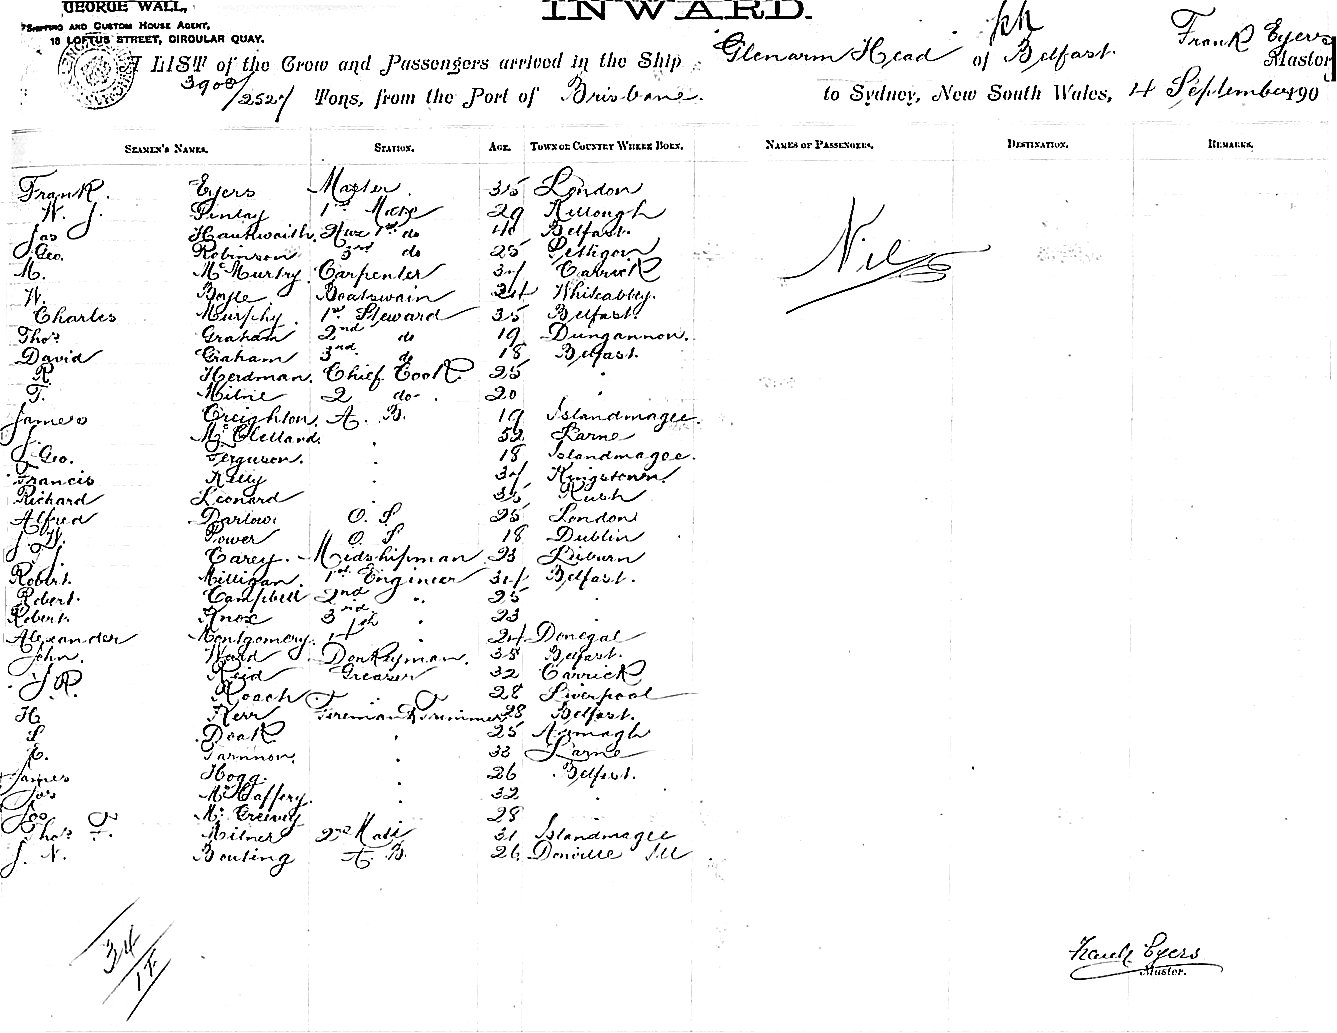 GEORGE WALL,
INWARD.
SHIPPING AND CUSTOM HOUSE AGENT,
18 LOFTUS STREET, CIRCULAR QUAY.
A LIST of the Crew and Passengers arrived in the Ship Glenarm Head of Belfast. Frank Eyers Master
3908/2527 Tons, from the Port of Brisbane. to Sydney, New South Wales, 4 September 190
SEAMEN'S NAMES. STATION. AGE. TOWN OR COUNTRY WHERE BORN. NAMES OF PASSENGERS. DESTINATION. REMARKS.
Frank Eyers Master 35 London
W. J. Finlay 1st Mate 29 Killough
Jas 40 Belfast.
Geo. Robinson 3rd do 25 Pettigo
M. McMurtry Carpenter 34 Carrick
W. Boyle Boatswain Whiteabby.
Nil
Charles Murphy 1st Steward 35 Belfast.
Thos Graham 2nd do 19 Dungannon.
David Graham 3rd do 18 Belfast.
R. Herdman. Chief Cook 25 "
T. Milne 2 do 20
James Creighton. A. B. 19 Islandmagee.
J. McClelland. " 52 Larne
J. Geo. Ferguson. " 18 Islandmagee.
Francis Kelly " 34 Kingstown.
Richard Leonard 35 Rush
Alfred Darlow. O. S 25 London
J. W. Power O. S 18 Dublin
J. Carey. Midshipman 23 Lisburn
Robert. Milligan. 1st Engineer 34 Belfast.
Robert. Campbell 2nd " 25 "
Robert. Knox 3rd " 23
Alexander Montgomery. 4th " 24 Donegal
John. Ward Donkeyman. 38 Belfast.
J. R. Reid Greaser 32 Carrick
Roach 28 Liverpool
H Kerr Fireman & Trimmer 28 Belfast.
S Doak " 25 Armagh
E. " 33 Larne
James Hogg. " 26 Belfast.
Jos McCaffery. " 32 "
Jos 28
Thos F. Milner 2nd Mate 31 Islandmagee
J. N. Bouling A. B. 26
34
Frank Eyers
Master.